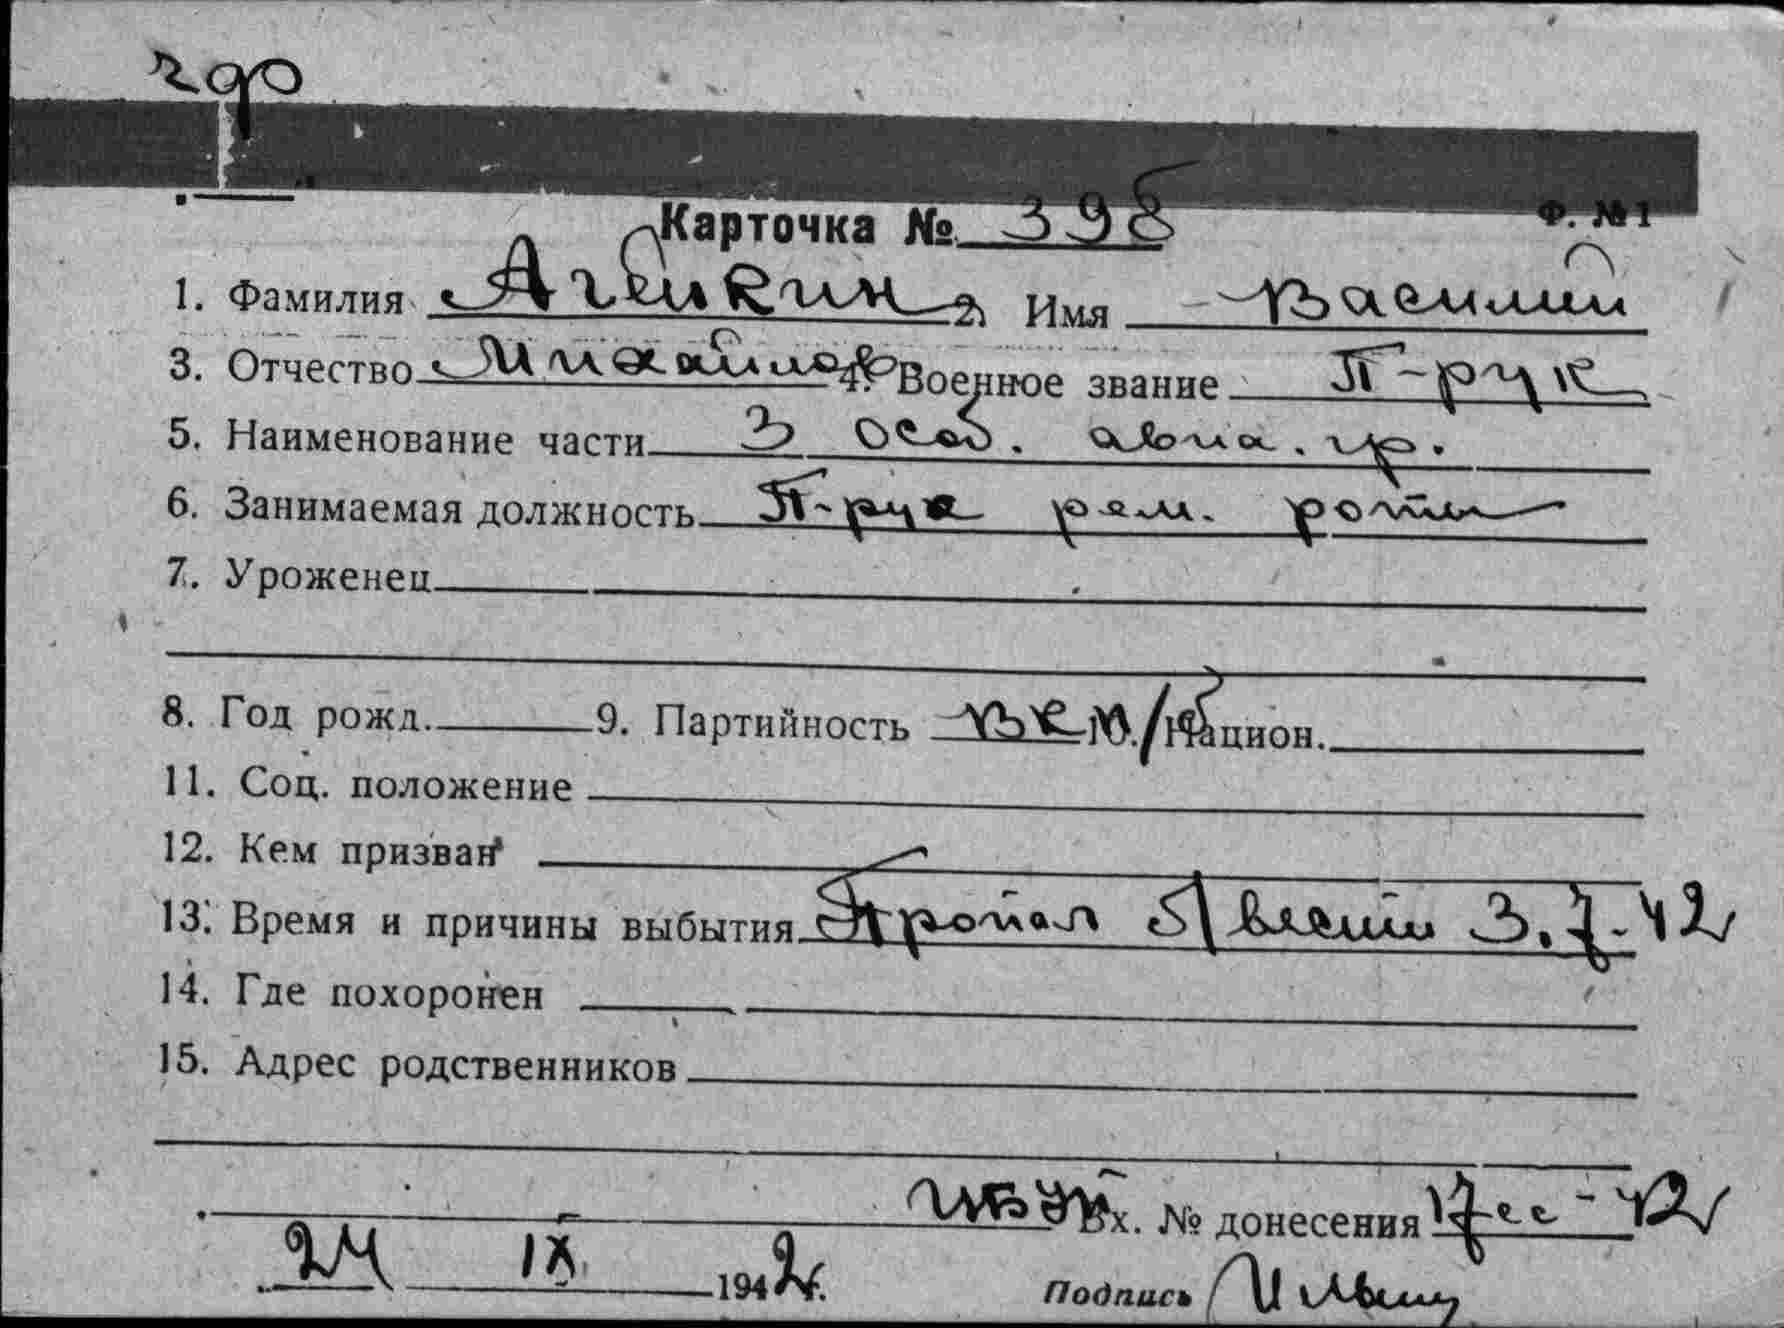 Карточка № 398
Ф. №1
1. Фамилия Агейкин 2. Имя Василий
3. Отчество Михайлов 4. Военное звание П-рук
5. Наименование части 3 особ. авто. гр.
6. Занимаемая должность П-рук рем. роты
7. Уроженец
8. Год рожд. 9. Партийность вкп/б Национ.
11. Соц. положение
12. Кем призван
13. Время и причины выбытия Пропал 3.7-42
14. Где похоронен
15. Адрес родственников
Вх. № донесения
24 IX 1942 г.
Подпись